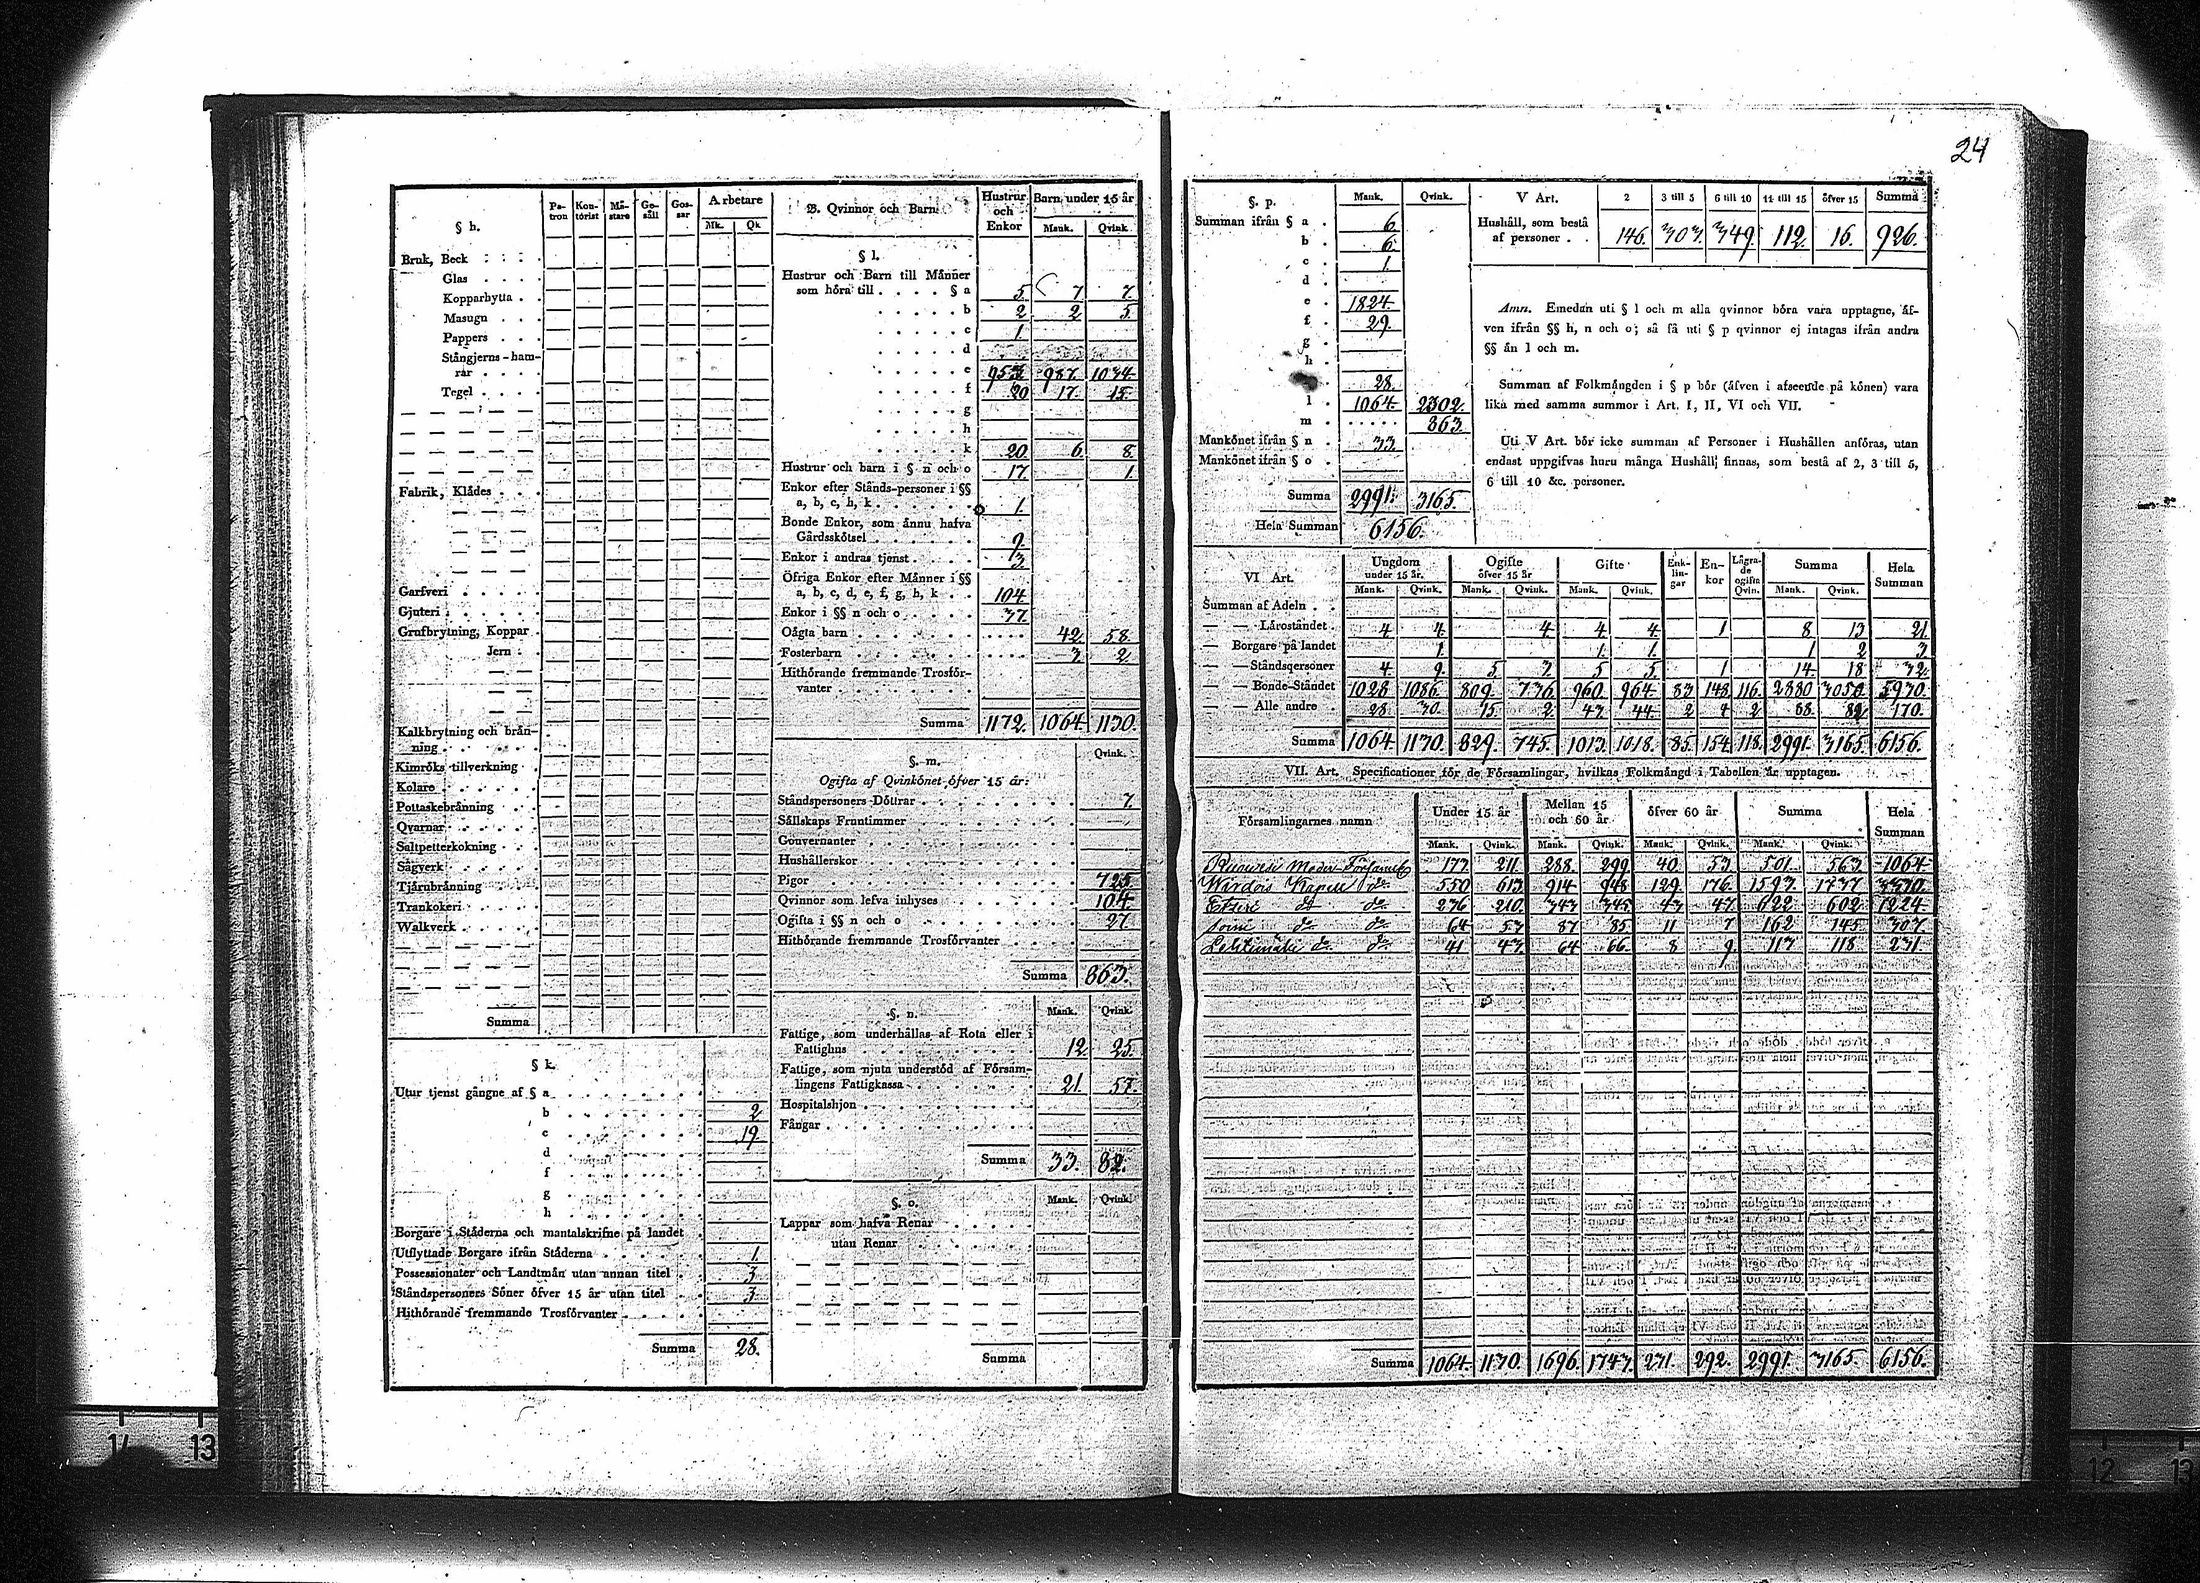 24
§ h.
Pa-tron Kon-torist Mä-stare Ge-säll Gos-sar Arbetare
Mk. Qk
Bruk, Beck
Glas
Kopparhytta
Masugn
Pappers
Stångjerns-ham-
rar
Tegel
Fabrik, Klädes
Garfveri
Gjuteri
Grufbrytning, Koppar
Jern
Kalkbrytning och brän-
ning
Kimröks tillverkning
Kolare
Pottaskebränning
Qvarnar
Saltpetterkokning
Sågverk
Tjärubränning
Trankokeri
Walkverk
Summa
§ k.
Utur tjenst gångne af § a
b 2
c 19
d
f
g
h
Borgare i Städerna och mantalskrifne på landet
Utflyttade Borgare ifrån Städerna 1
Possessionater och Landtmän utan annan titel 3
Ståndspersoners Söner öfver 15 år utan titel 3
Hithörande fremmande Trosförvanter
Summa 28.
B. Qvinnor och Barn Hustrur och Enkor Barn under 15 år
Mank. Qvink.
§ l.
Hustrur och Barn till Männer
som höra till § a 5. 7 7.
b 2 2 5.
c 1.
d
e 953 987. 1034.
f 20 17. 15.
g
h
k 20. 6. 8.
Hustrur och barn i § n och o 17. 1.
Enkor efter Stånds-personer i §§
a, b, c, h, k 1.
Bonde Enkor, som ännu hafva
Gårdsskötsel 9.
Enkor i andras tjenst 3
Öfriga Enkor efter Männer i §§
a, b, c, d, e, f, g, h, k 104.
Enkor i §§ n och o 37.
Oägta barn 42. 58.
Fosterbarn 3. 2.
Hithörande fremmande Trosför-
vanter
Summa 1172. 1064. 1130.
§. m. Qvink.
Ogifta af Qvinkönet öfver 15 år:
Ståndspersoners Döttrar 7.
Sällskaps Fruntimmer
Gouvernanter
Hushållerskor
Pigor 725.
Qvinnor som lefva inhyses 104.
Ogifta i §§ n och o 27.
Hithörande fremmande Trosförvanter
Summa 863.
§. n. Mank. Qvink.
Fattige, som underhållas af Rota eller i
Fattighus 12. 25.
Fattige, som njuta understöd af Försam-
lingens Fattigkassa 21. 57.
Hospitalshjon
Fångar
Summa 33. 82.
§. o. Mank. Qvink.
Lappar som hafva Renar
utan Renar
Summa
§. p. Mank. Qvink.
Summan ifrån § a 6.
b 6.
c 1.
d
e 1824.
f 29.
g
h
28.
l 1064. 2302.
m 863.
Mankönet ifrån § n 33.
Mankönet ifrån § o
Summa 2991. 3165.
Hela Summan 6156.
V Art. 2 3 till 5 6 till 10 11 till 15 öfver 15 Summa
Hushåll, som bestå
af personer 146. 303. 349. 112. 16. 926.
Anm. Emedan uti § l och m alla qvinnor böra vara upptagne, äf-
ven ifrån §§ h, n och o; så få uti § p qvinnor ej intagas ifrån andra
§§ än l och m.
Summan af Folkmängden i § p bör (äfven i afseende på könen) vara
lika med samma summor i Art. I, II, VI och VII.
Uti V Art. bör icke summan af Personer i Hushållen anföras, utan
endast uppgifvas huru många Hushåll finnas, som bestå af 2, 3 till 5,
6 till 10 &c. personer.
VI Art. Ungdom under 15 år. Ogifte öfver 15 år Gifte Enk-lin-gar En-kor Lägra-de ogifta Qvin. Summa Hela Summan
Mank. Qvink. Mank. Qvink. Mank. Qvink. Mank. Qvink.
Summan af Adeln
— — Läroståndet 4 4. 4 4 4. 1 8 13 21.
— Borgare på landet 1. 1. 1. 1 2 3.
— — Ståndspersoner 4 9. 5 3 5 5. 1 14. 18 32.
— — Bonde-Ståndet 1028 1086. 809. 736. 960. 964. 83 148. 116. 2880 3050. 5930.
— — Alle andre 28. 30. 15. 2. 43. 44. 2 4 2. 88. 82. 170.
Summa 1064. 1130. 829. 745. 1013. 1018. 85. 154. 118. 2991. 3165. 6156.
VII. Art. Specificationer för de Församlingar, hvilkas Folkmängd i Tabellen är upptagen.
Församlingarnes namn Under 15 år Mellan 15 och 60 år öfver 60 år Summa Hela Summan
Mank. Qvink. Mank. Qvink. Mank. Qvink. Mank. Qvink.
Moder-Församl. 173. 211. 288. 299. 40. 53. 501. 563. 1064.
Kapell do 550 613. 914. 948. 129. 176. 1593. 1737. 3330.
do do 236 210. 343. 345. 43. 47. 622. 602. 1224.
do do 64 53 87 85. 11 7 162 145. 307.
do do 41 43. 64 66 8 9. 113 118 231.
Summa 1064. 1130. 1696. 1743. 231. 292. 2991. 3165. 6156.
14 13
12 13